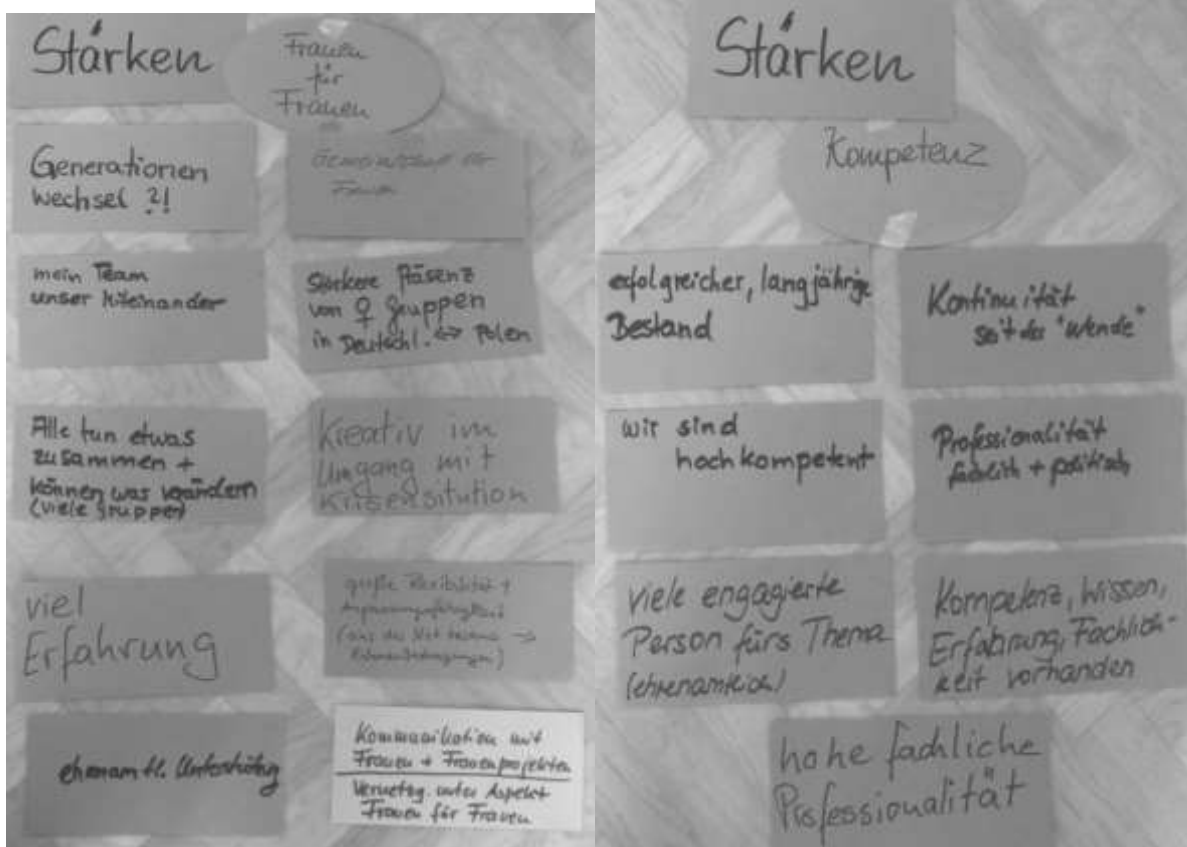 Stärken
Frauen
für
Frauen
Generationen
wechsel ?!
Gemeinschaft der
Frauen
mein Team
unser Miteinander
Stärkere Präsenz
von ♀ gruppen
in Deutschl. ↔ Polen
Alle tun etwas
zusammen +
können was verändern
(viele gruppen)
Kreativ im
Umgang mit
Krisensitution
viel
Erfahrung
große Flexibilität +
Anpassungsfähigkeit
(aus der Not heraus →
ehrenamtl. Unterstützung
Kommunikation mit
Frauen + Frauenprojekten
Vernetzg. unter Aspekt
Frauen für Frauen
Stärken
Kompetenz
erfolgreicher, langjährige
Bestand
Kontinuität
seit der "Wende"
wir sind
hochkompetent
Professionalität
fachlich + politisch
viele engagierte
Person fürs Thema
(ehrenamtlich)
Kompetenz, Wissen,
Erfahrung, Fachlich-
keit vorhanden
hohe fachliche
Professionalität